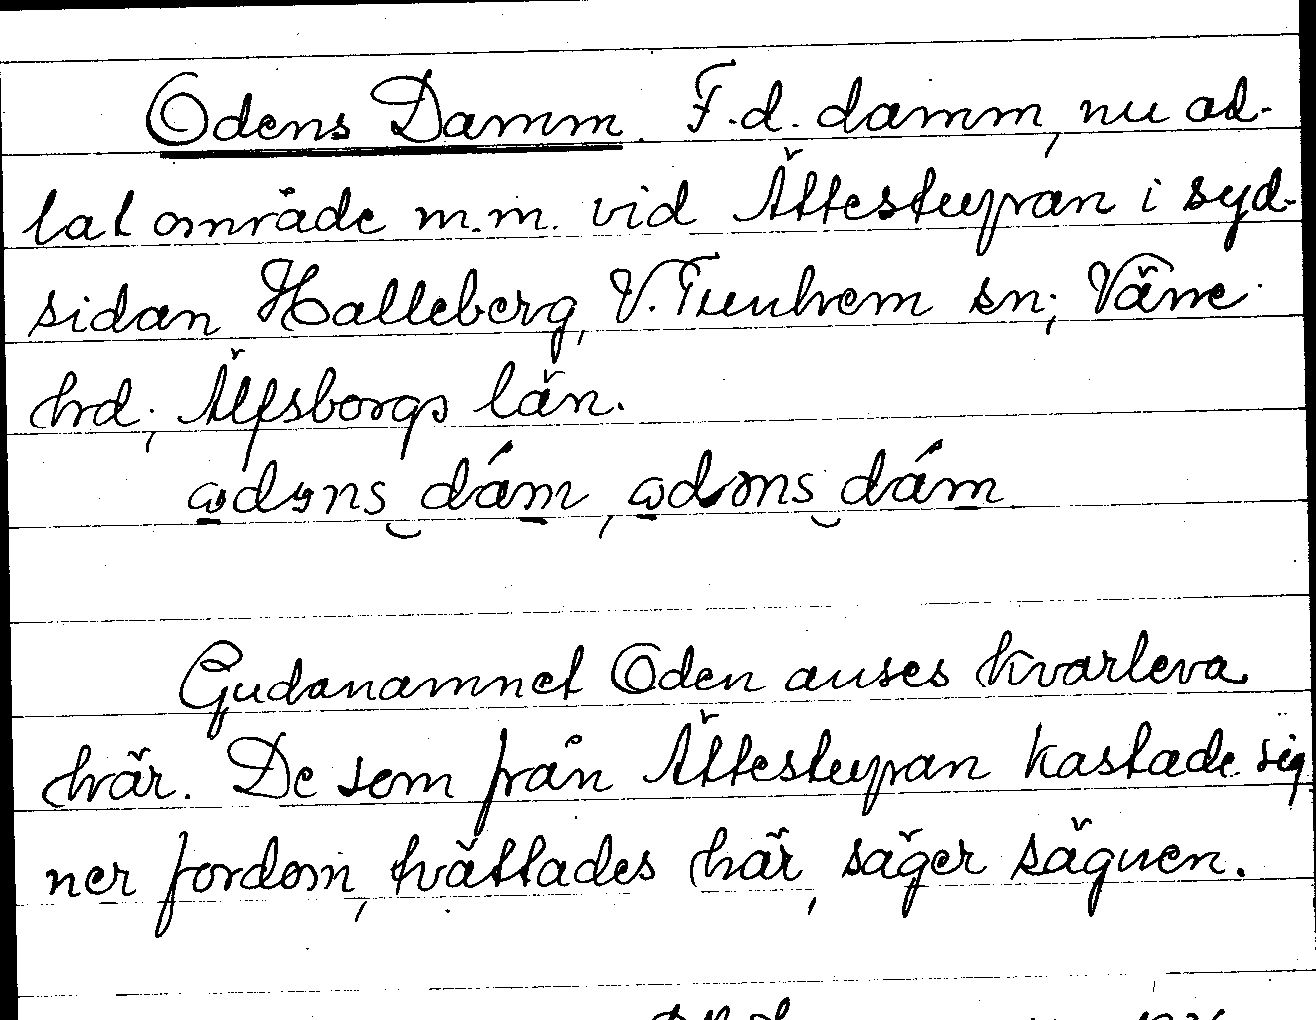 Odens Damm. F.d. damm, nu od-
lat område m.m. vid Ättestupan i syd-
sidan Halleberg, V. Tunhem sn; Väne
hrd; Älfsborgs län.
dám, dám
Gudanamnet Oden anses kvarleva
här. De som från Ättestupan kastade sig
ner fordom, tvättades här, säger sägnen.